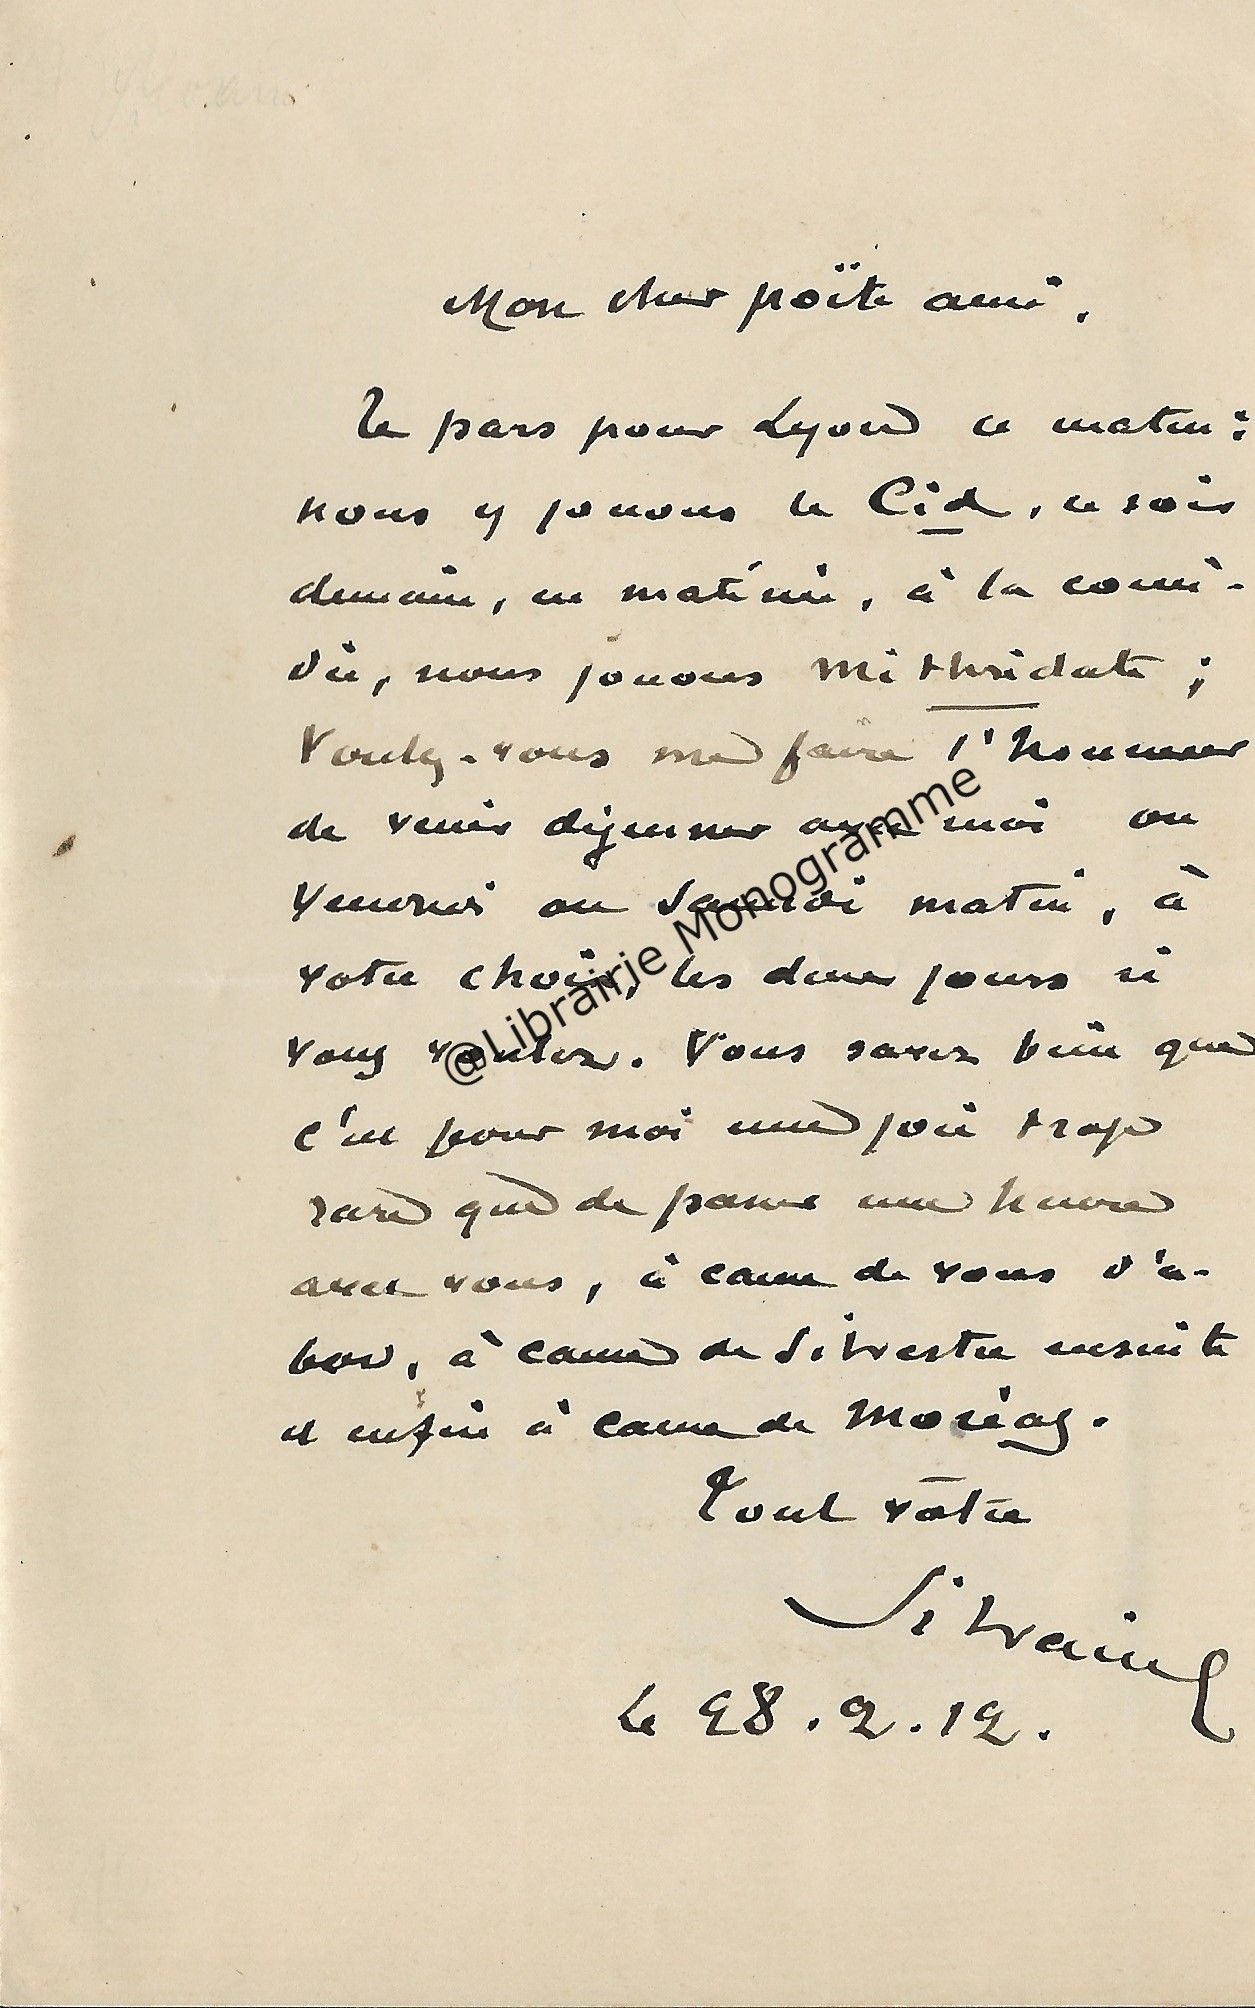 Mon cher poëte ami,
Je pars pour Lyon ce matin :
nous y jouons le Cid, ce soir
demain, en matinée, à la comé-
die, nous jouons Mithridate ;
Voulez-vous me faire l'honneur
de venir déjeuner avec moi ou
vendredi ou samedi matin, à
votre choix, les deux jours si
vous voulez. Vous savez bien que
c'est pour moi une joie trop
rare que de passer une heure
avec vous, à cause de vous d'a-
bord, à cause de Silvestre ensuite
et enfin à cause de Moréas.
Tout vôtre
Silvain
Le 28.2.12.
@Librairie Monogramme